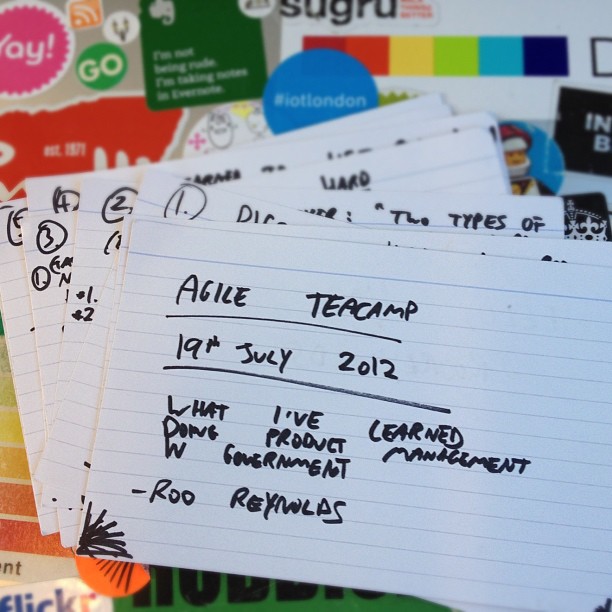 sugru
Yay!
GO
I'm not
being rude.
I'm taking notes
in Evernote.
#iotlondon
EST. 1971
HARD
④ ② ①.
③
"TWO TYPES OF
①
*1.
*2
AGILE TEACAMP
19th JULY 2012
WHAT I'VE LEARNED
DOING PRODUCT MANAGEMENT
IN GOVERNMENT
- ROO REYNOLDS
flickr